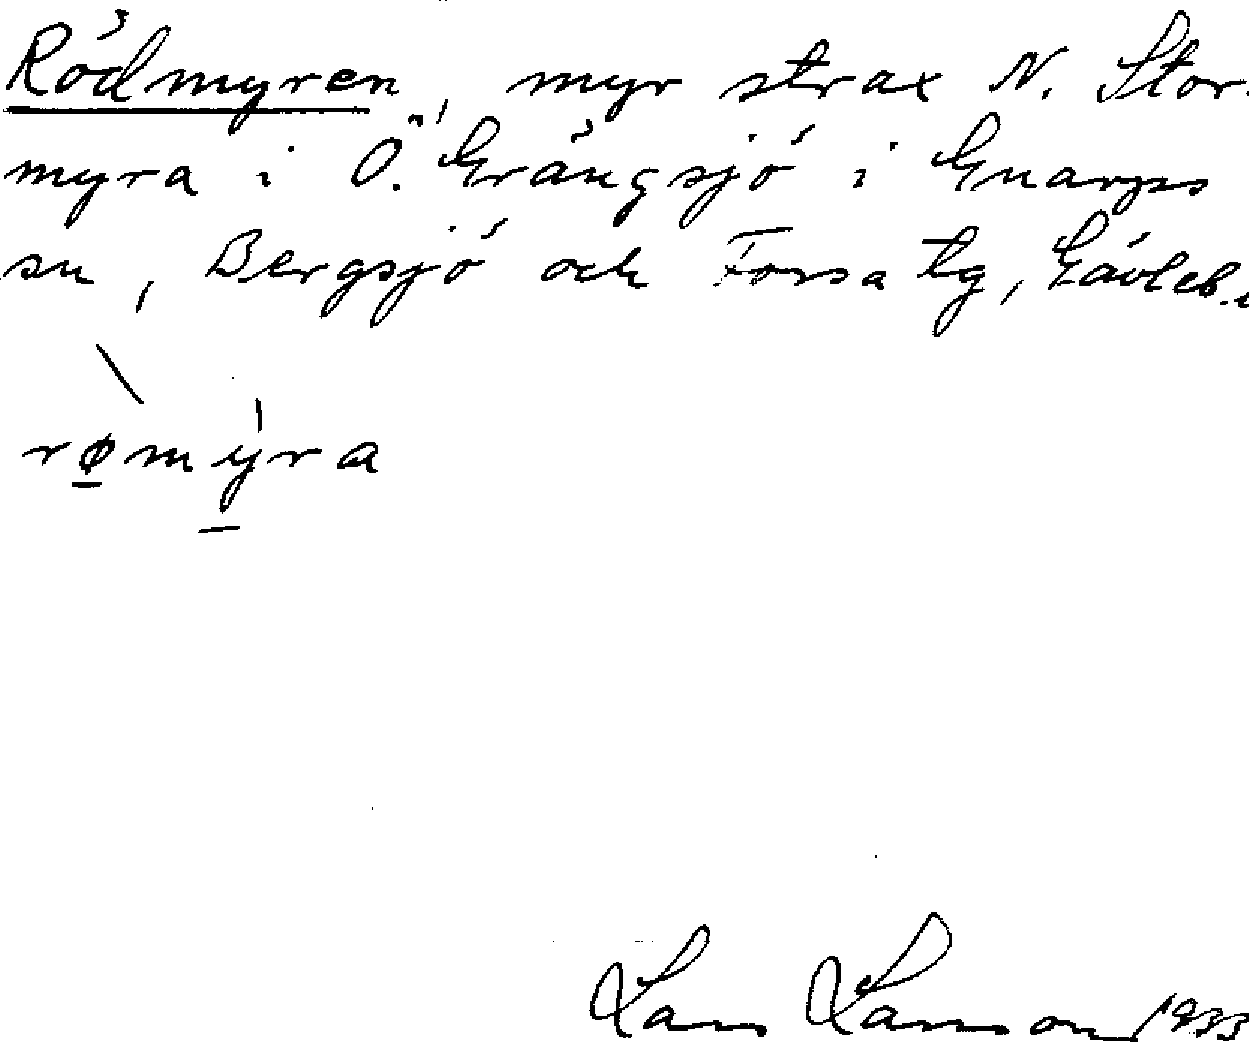 Rödmyren, myr strax N. Stor-
myra i Ö. Grängsjö i Gnarps
sn, Bergsjö och Forsa tg, Gävleb.
rømyra
Lars Larsson 1933